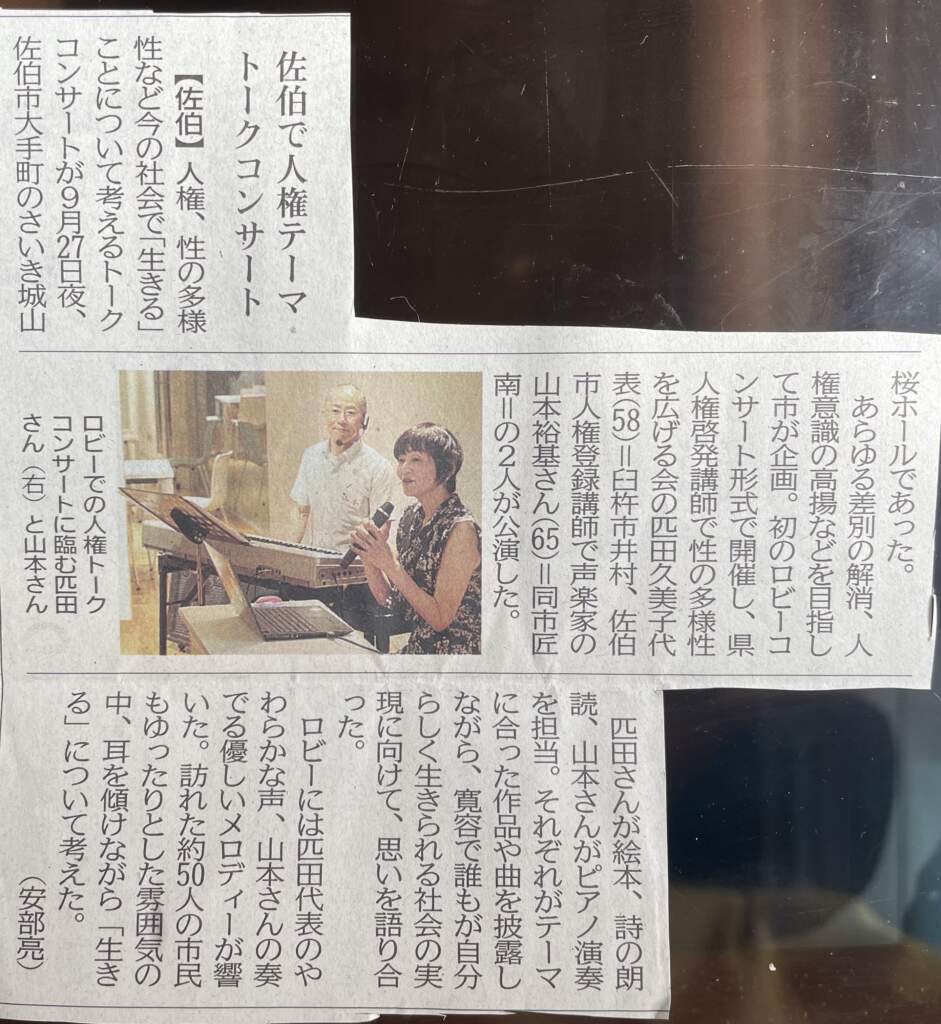 佐伯で人権テーマ
トークコンサート
【佐伯】人権、性の多様
性など今の社会で「生きる」
ことについて考えるトーク
コンサートが9月27日夜、
佐伯市大手町のさいき城山
桜ホールであった。
あらゆる差別の解消、人
権意識の高揚などを目指し
て市が企画。初のロビーコ
ンサート形式で開催し、県
人権啓発講師で性の多様性
を広げる会の匹田久美子代
表(58)＝臼杵市井村、佐伯
市人権登録講師で声楽家の
山本裕基さん(65)＝同市匠
南＝の2人が公演した。
ロビーでの人権トーク
コンサートに臨む匹田
さん（右）と山本さん
匹田さんが絵本、詩の朗
読、山本さんがピアノ演奏
を担当。それぞれがテーマ
に合った作品や曲を披露し
ながら、寛容で誰もが自分
らしく生きられる社会の実
現に向けて、思いを語り合
った。
ロビーには匹田代表のや
わらかな声、山本さんの奏
でる優しいメロディーが響
いた。訪れた約50人の市民
もゆったりとした雰囲気の
中、耳を傾けながら「生き
る」について考えた。
（安部亮）